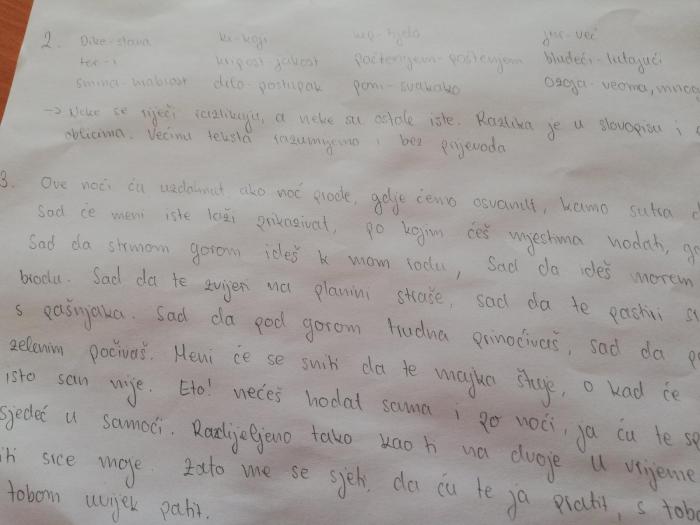 2. Dike-slava ki-koji lip-lijepo jur-već
ter-i kripost-jakost počtenjem-poštenjem bludeći-lutajući
smina-hrabrost dilo-postupak poni-svakako ozoja-veoma, mnogo
→ Neke se riječi razlikuju, a neke su ostale iste. Razlika je u slovopisu i
oblicima. Većinu teksta razumijemo i bez prijevoda
3. Ove noći ću uzdahnut ako noć prođe, gdje ćemo osvanuti, kamo sutra
Sad će meni iste laži prikazivat, po kojim ćeš mjestima hodati,
Sad da strmom gorom ideš k mom rodu, Sad da ideš morem
brodu. Sad da te zvijeri na planini straše, sad da te pastiri
s pašnjaka. Sad da pod gorom trudna prinoćivaš, sad da
zelenim počivaš. Meni će se sniti da te majka štuje, o kad će
isto san nije. Eto! nećeš hodat sama i po noći, ja ću te
sjedeć u samoći. Razdijeljeno tako kao ti na dvoje u vrijeme
iti srce moje. Zato me se sjeti, da ću te ja pratit, s
tobom uvijek patit.